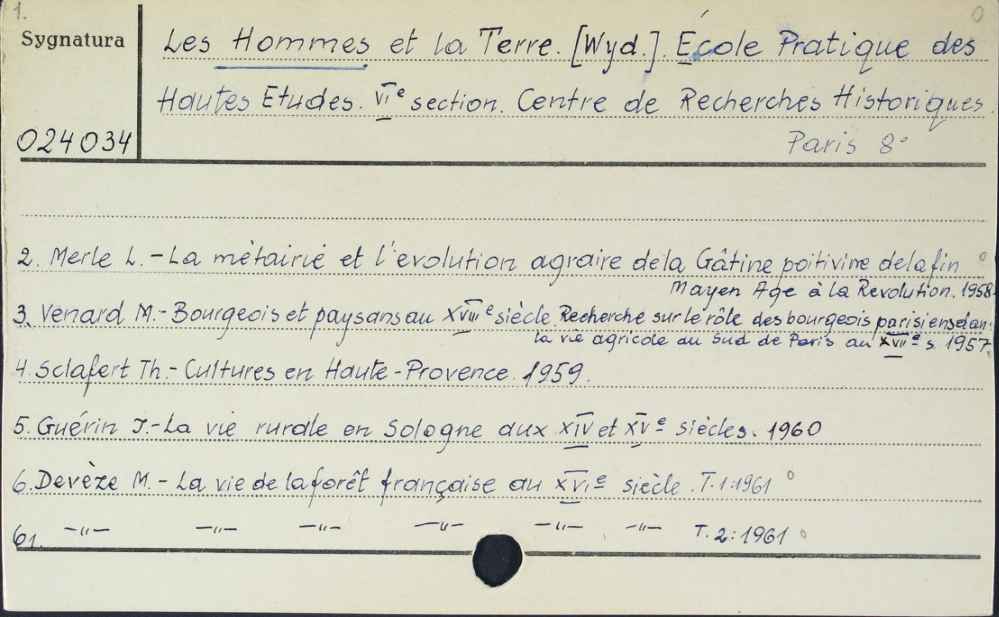 1.
Sygnatura
Les Hommes et la Terre. [Wyd.]. École Pratique des
Hautes Etudes. VIe section. Centre de Recherches Historiques.
024034
Paris 8°
2. Merle L. - La métairie et l'evolution agraire de la Gâtine poitivine de la fin
Mayen Age à la Revolution. 1958
3. Venard M. - Bourgeois et paysans au XVIIIe siècle. Recherche sur le rôle des bourgeois parisiens dan
la vie agricole au Sud de Paris au XVIIe s. 1957.
4. Sclafert Th. - Cultures en Haute-Provence. 1959.
5. Guérin I. - La vie rurale en Sologne aux XIV et XVe siècles. 1960
6. Devèze M. - La vie de la forêt française au XVIe siècle. T. 1: 1961
61. -"- -"- -"- -"- -"- -"- T. 2: 1961